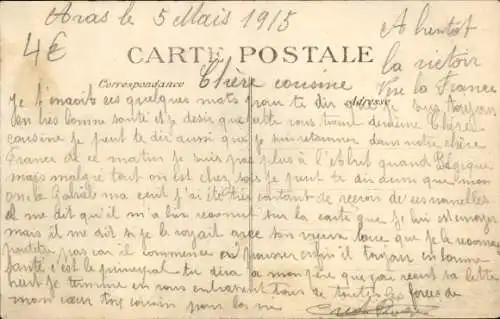 Aras le 5 Mais 1915
A bientot
la victoir
Vive la France
4€
CARTE POSTALE
Correspondance
Adresse
Chère cousine
Je t'envoit ces quelques mots pour te dire que je suis toujour
en tres bonne santé et je desir que cette vous trouve de meme Chère
cousine je peut te dir aussi que je suis retourner dans notre chère
France de ce matin je suis pas plus à l'abrit quand Belgique
mais malgré tout on est cher sois je peut te dir aussi que mon
oncle Gabriel ma ecrit j'ai été très contant de recevoir de ses nouvelles
il me dit qu'il m'a bien reconnut sur la carte que je lui est envoyer
mais il me dit si je le voyait avec son vieux que je le reconnai
pas car il commence a pousser enfin il toujour en bonne
santé c'est le principal tu dira a mon père que j'ai recut sa lettre
je termine en vous entrassent tous de toutes les forces de
mon cœur ton cousin pour la vie